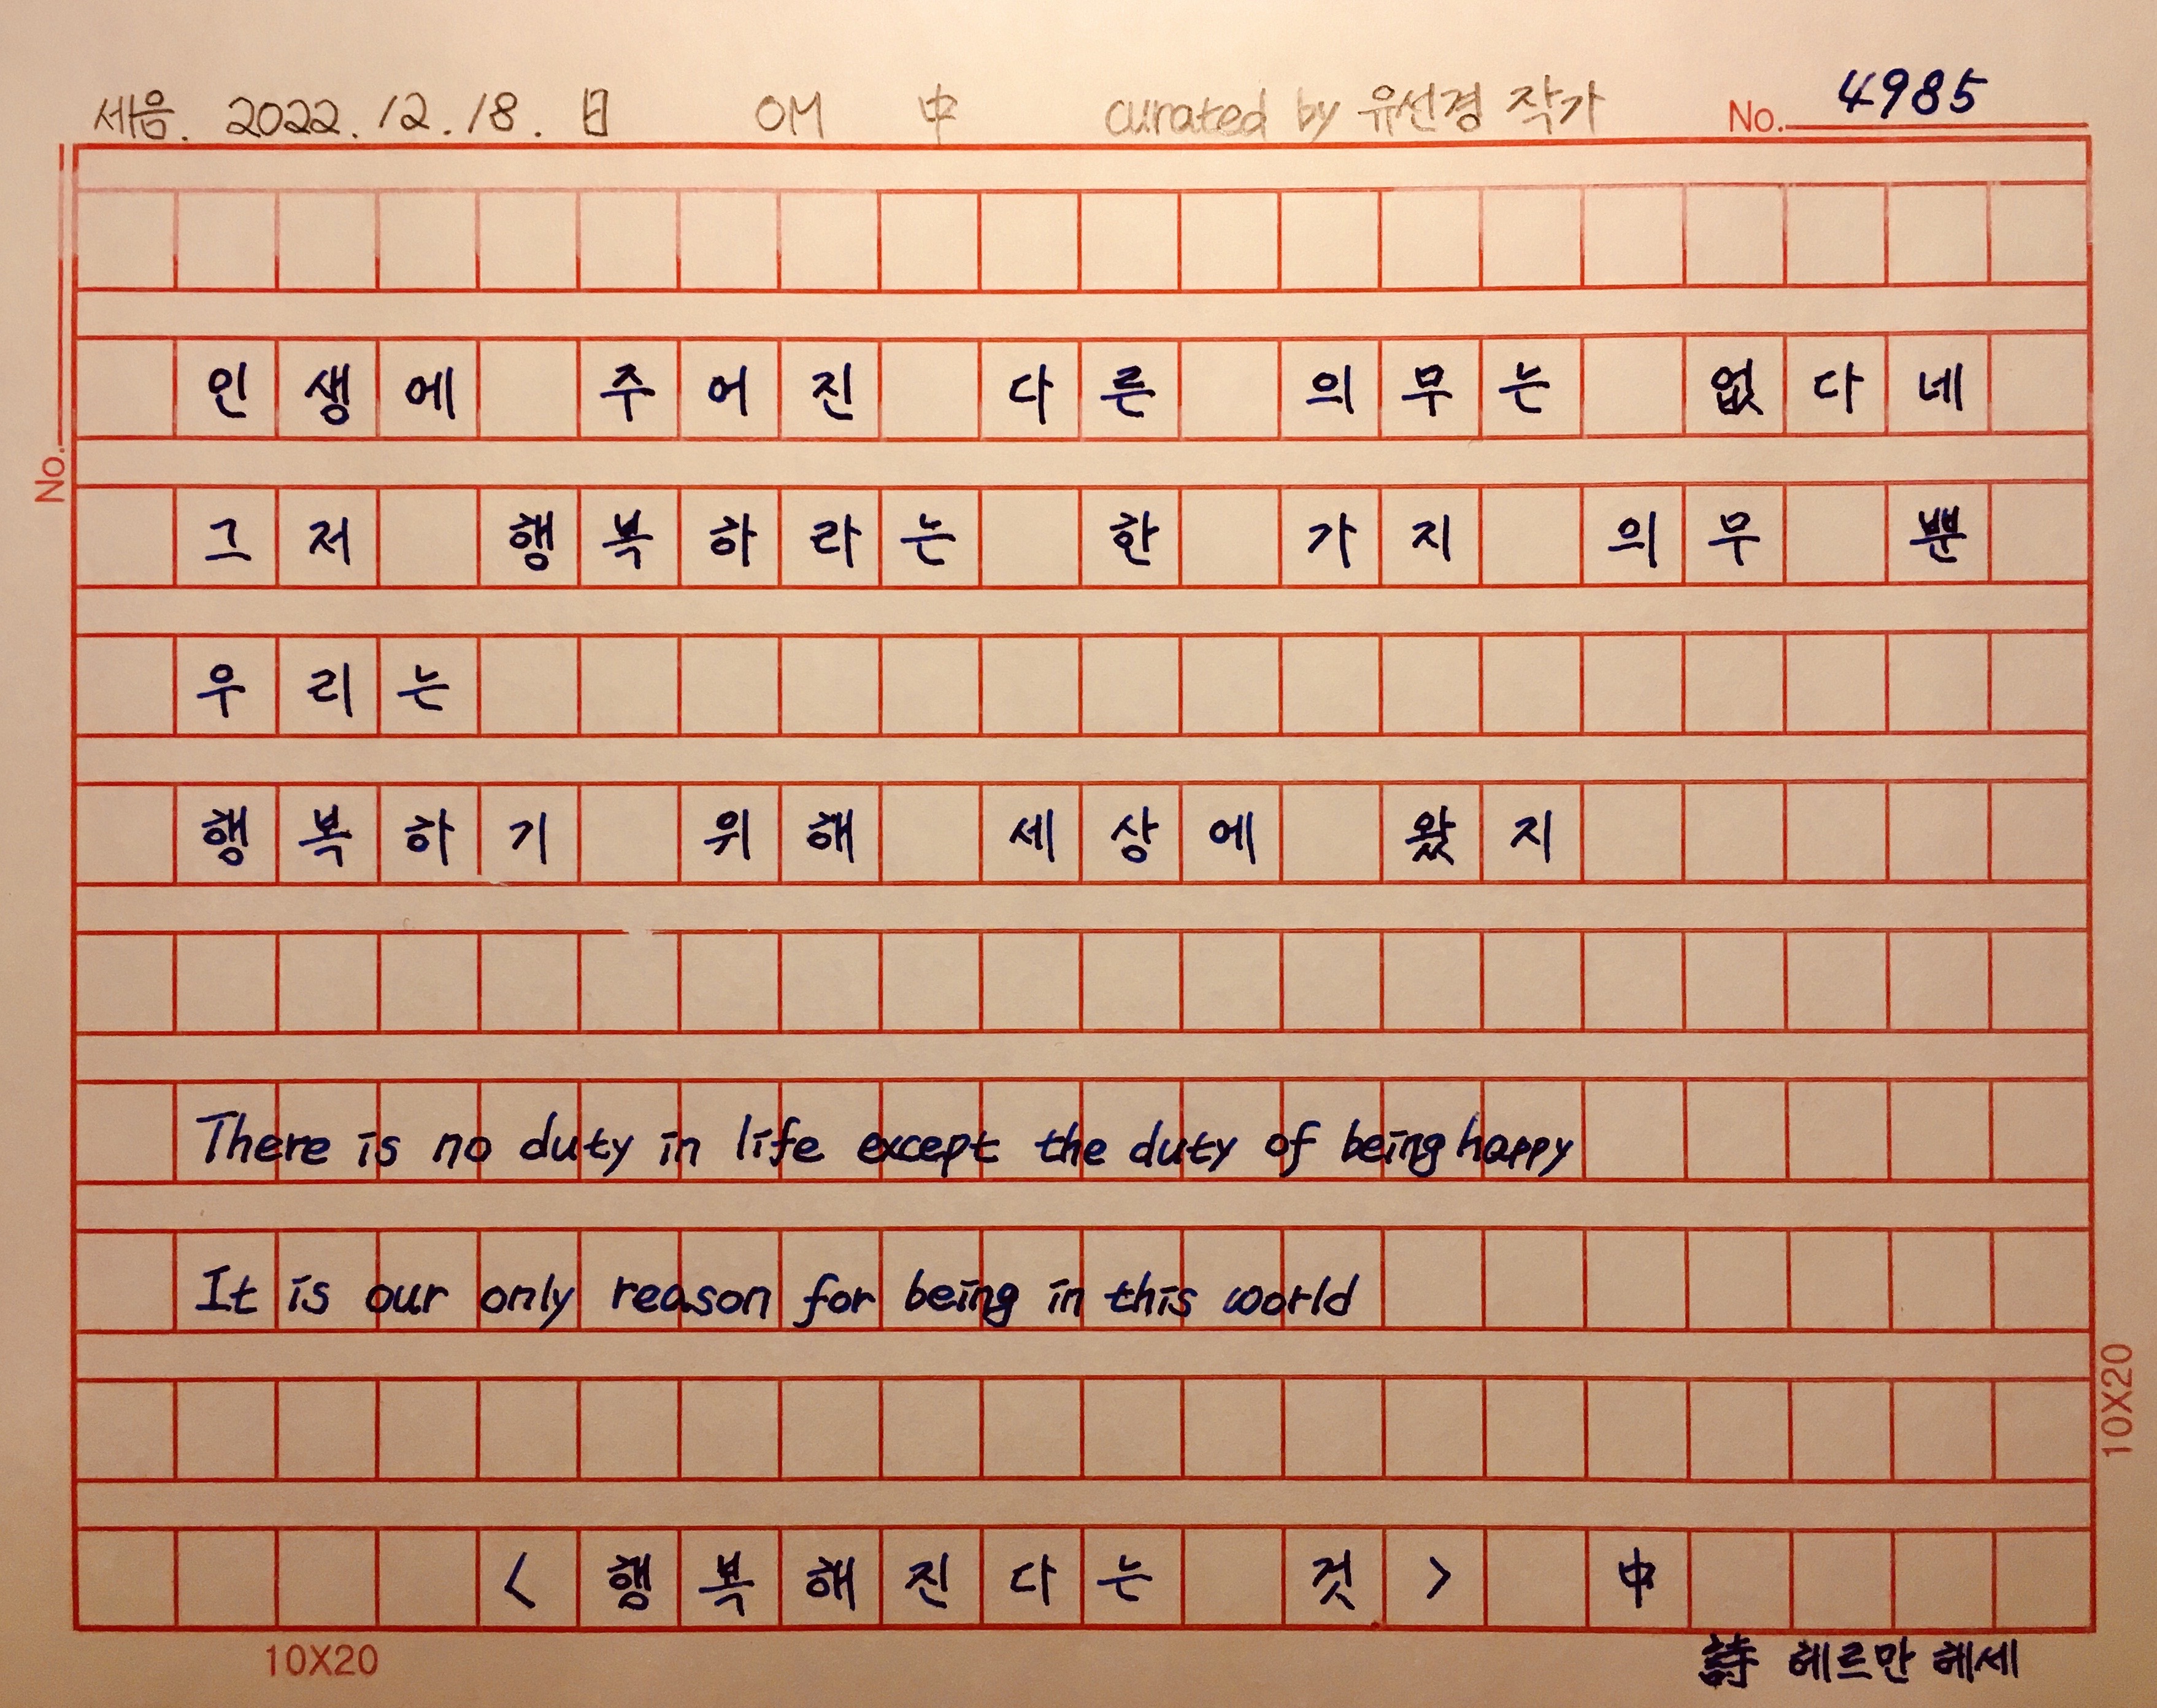 세음. 2022.12.18. 日 OM 中 curated by 유선경 작가 No. 4985
인생에 주어진 다른 의무는 없다네
No.
그저 행복하라는 한 가지 의무 뿐
우리는
행복하기 위해 세상에 왔지
There is no duty in life except the duty of being happy
It is our only reason for being in this world
10X20
<행복해진다는 것> 中
10X20
詩 헤르만 헤세